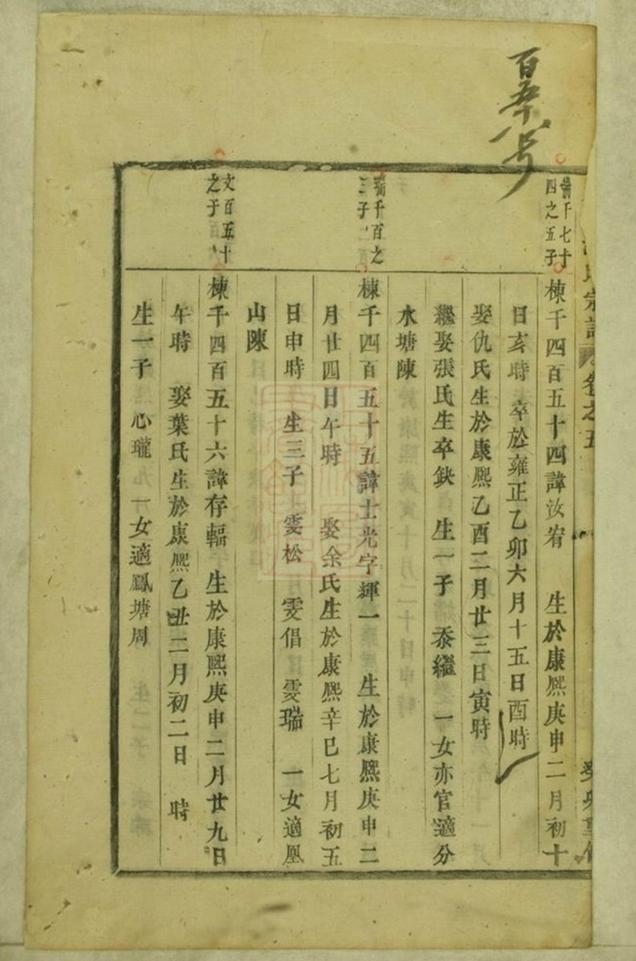 百葊八号
氏宗譜 卷之五
癸卯重修
啇千七十
四之五子
棟千四百五十四諱汝宥 生於康熙庚申二月初十
日亥時 卒於雍正乙卯六月十五日酉時
娶仇氏生於康熙乙酉二月廿三日寅時
繼娶張氏生卒缺 生一子 泰繼 一女亦官適分
水塘陳
千百之
三子
棟千四百五十五諱士光字輝一 生於康熙庚申二
月廿四日午時 娶余氏生於康熙辛巳七月初五
日申時 生三子 雯松 雯倡 雯瑞 一女適凰
山陳
文百五十
之子
棟千四百五十六諱存輻 生於康熙庚申二月廿九日
午時 娶葉氏生於康熙乙丑二月初二日 時
生一子 心瓏 一女適鳳塘周